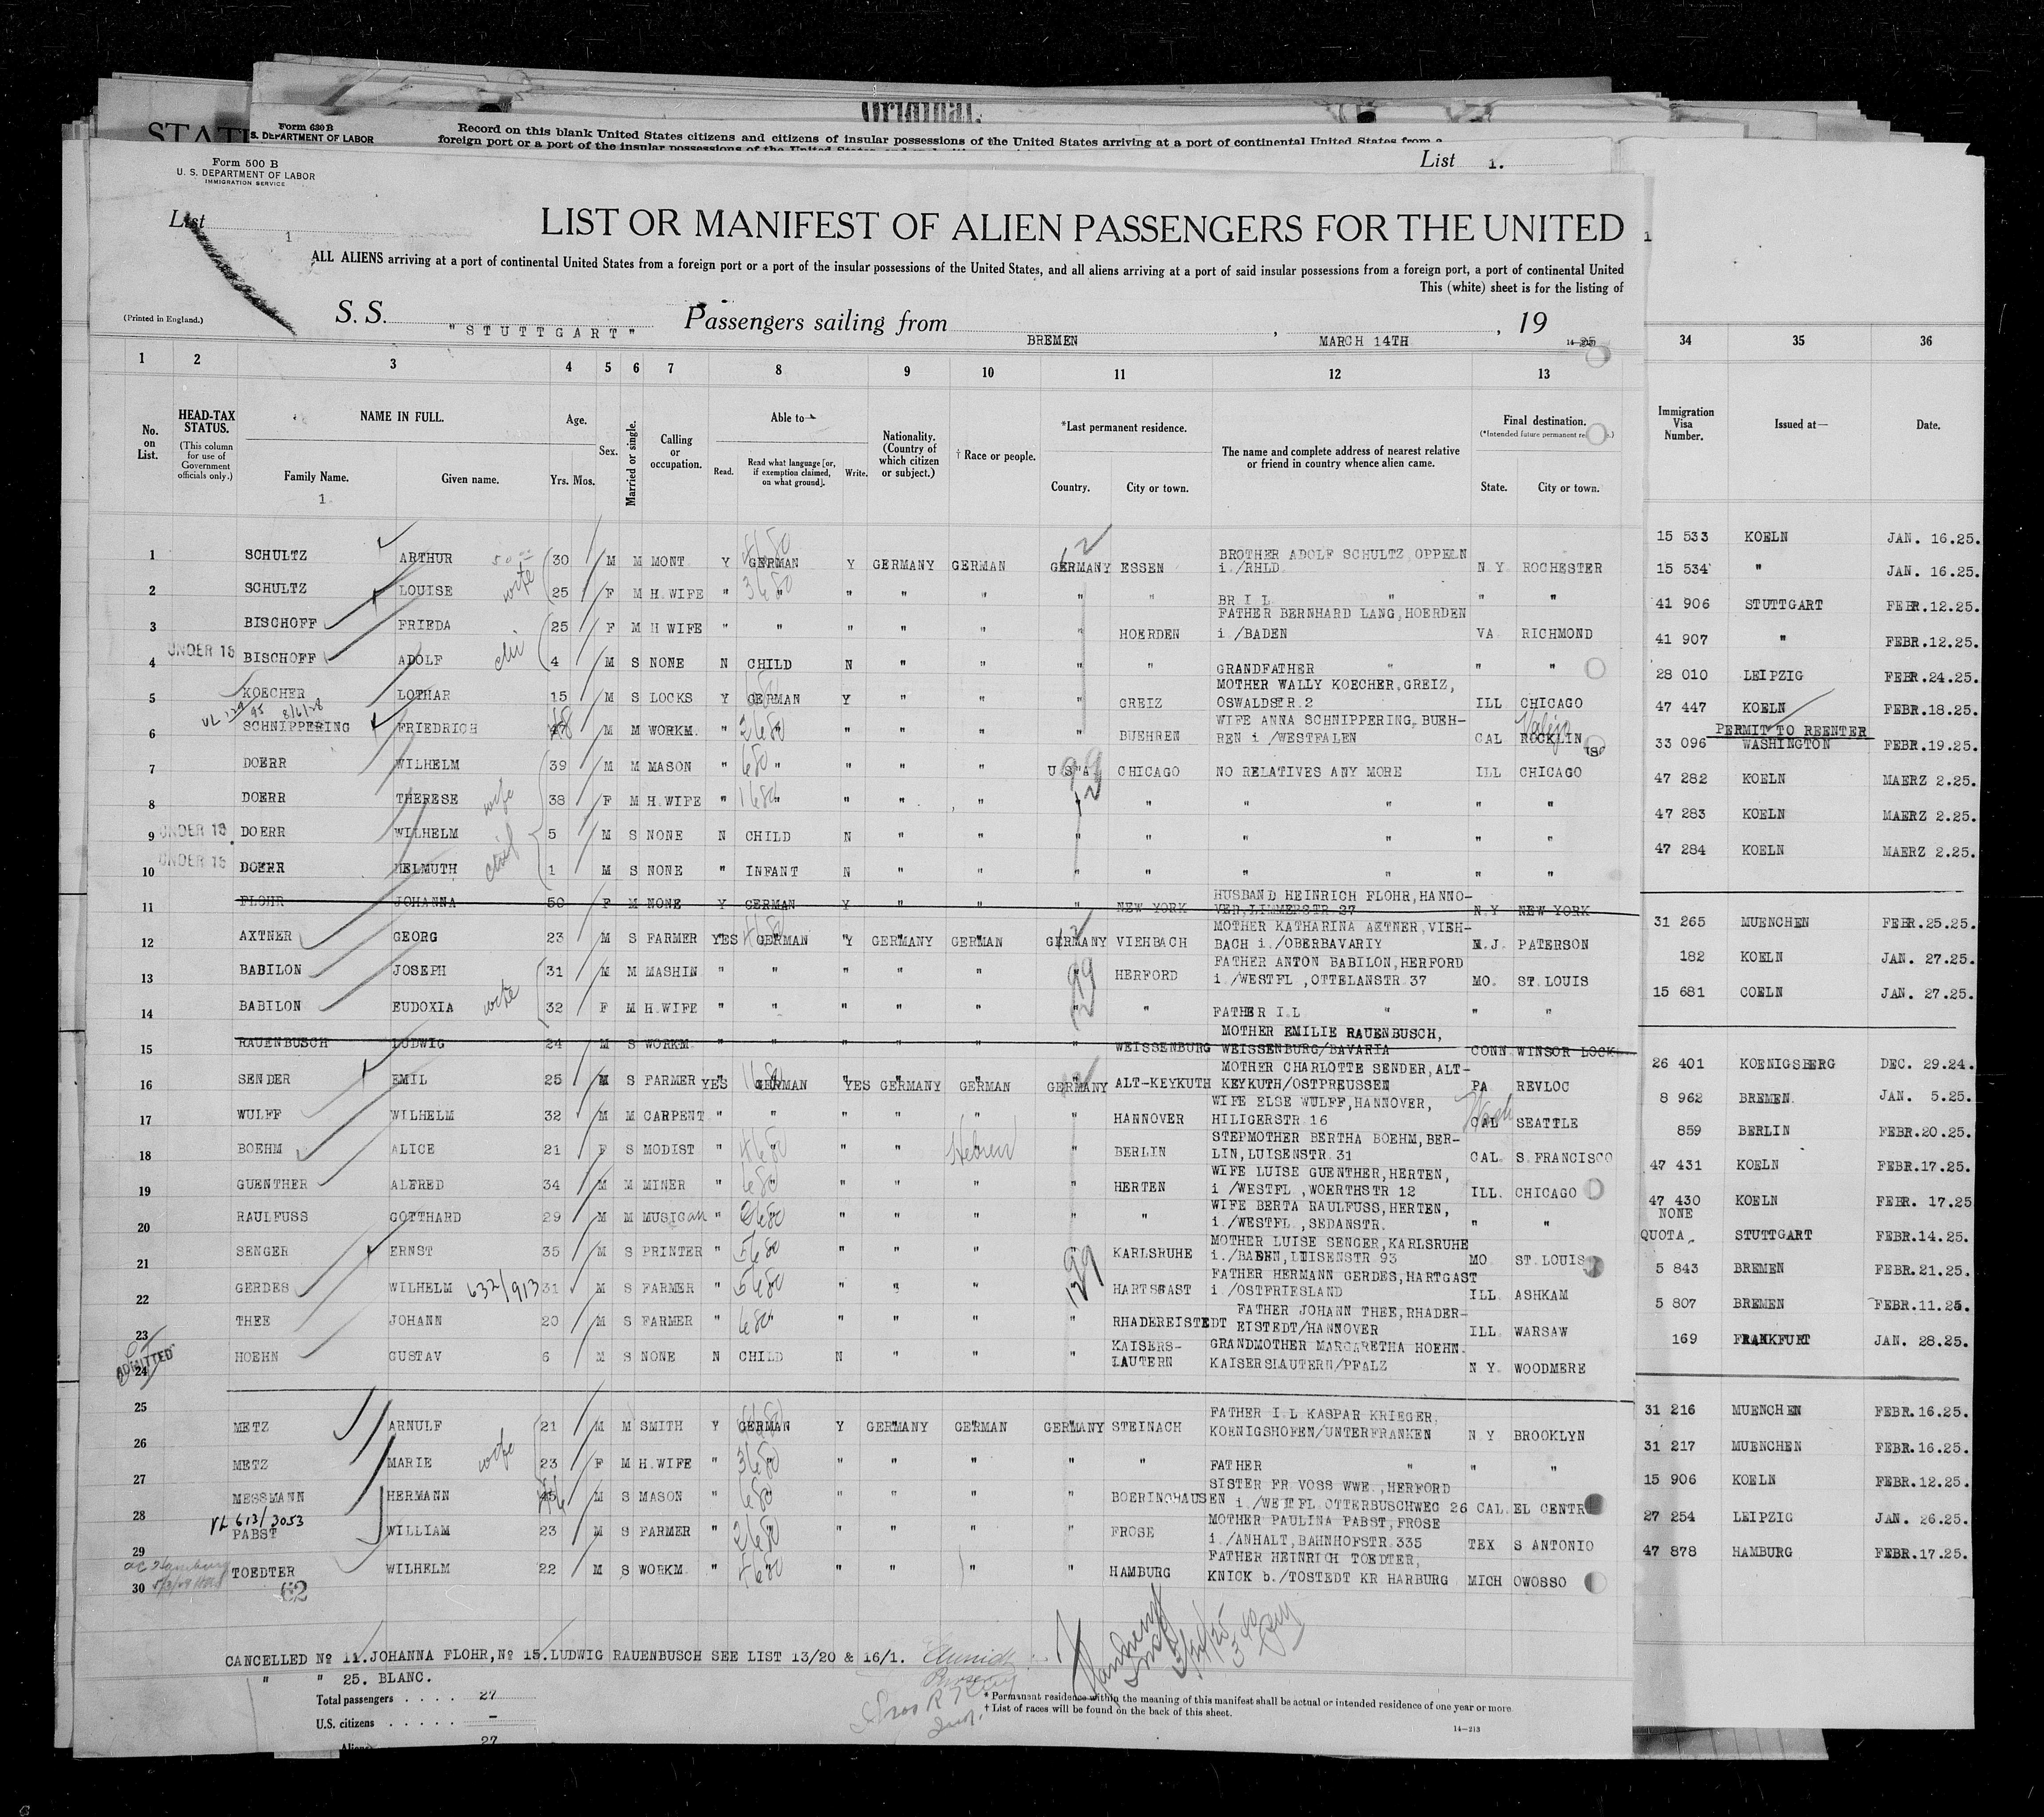 Original.
STATE
Form 630 B
S. DEPARTMENT OF LABOR
Record on this blank United States citizens and citizens of insular possessions of the United States arriving at a port of continental United States from a
foreign port or a port of the insular possessions of the United States
List 1.
Form 500 B
U. S. DEPARTMENT OF LABOR
IMMIGRATION SERVICE
List 1
LIST OR MANIFEST OF ALIEN PASSENGERS FOR THE UNITED
ALL ALIENS arriving at a port of continental United States from a foreign port or a port of the insular possessions of the United States, and all aliens arriving at a port of said insular possessions from a foreign port, a port of continental United
This (white) sheet is for the listing of
(Printed in England.)
S. S. "STUTTGART" Passengers sailing from BREMEN, MARCH 14TH, 19 25
1 2 3 4 5 6 7 8 9 10 11 12 13 34 35 36
No. on List.
HEAD-TAX STATUS.
(This column for use of Government officials only.)
NAME IN FULL.
Family Name.
1
Given name.
Age.
Yrs. Mos.
Sex.
Married or single.
Calling or occupation.
Able to—
Read.
Read what language [or, if exemption claimed, on what ground].
Write.
Nationality. (Country of which citizen or subject.)
† Race or people.
*Last permanent residence.
Country.
City or town.
The name and complete address of nearest relative or friend in country whence alien came.
Final destination.
State.
City or town.
Immigration Visa Number.
Issued at—
Date.
1 SCHULTZ ARTHUR 30 M M MONT Y GERMAN Y GERMANY GERMAN GERMANY ESSEN BROTHER ADOLF SCHULTZ,OPPELN i./RHLD. N Y ROCHESTER 15 533 KOELN JAN. 16.25.
2 SCHULTZ LOUISE wife 25 F M H.WIFE " " " " " " " BR I L " " " 15 534 " JAN. 16.25.
3 BISCHOFF FRIEDA 25 F M H WIFE " " " " " " HOERDEN FATHER BERNHARD LANG,HOERDEN i./BADEN VA. RICHMOND 41 906 STUTTGART FEBR.12.25.
UNDER 16
4 BISCHOFF ADOLF 4 M S NONE N CHILD N " " " " GRANDFATHER " " " 41 907 " FEBR.12.25.
5 KOECHER LOTHAR 15 M S LOCKS Y GERMAN Y " " " GREIZ MOTHER WALLY KOECHER,GREIZ, OSWALDSTR.2 ILL CHICAGO 28 010 LEIPZIG FEBR.24.25.
8/6/28
6 SCHNIPPERING FRIEDRICH 48 M M WORKM. " 2680 " " " " BUEHREN WIFE ANNA SCHNIPPERING,BUEH- REN i /WESTFALEN CAL ROCKLIN 47 447 KOELN FEBR.18.25.
PERMIT TO REENTER
7 DOERR WILHELM 39 M M MASON " 680 " " " U S A CHICAGO NO RELATIVES ANY MORE ILL CHICAGO 33 096 WASHINGTON FEBR.19.25.
8 DOERR THERESE wife 38 F M H.WIFE " 1680 " " " " " " " " " 47 282 KOELN MAERZ 2.25.
UNDER 16
9 DOERR WILHELM 5 M S NONE N CHILD N " " " " " " " " 47 283 KOELN MAERZ 2.25.
UNDER 16
10 DOERR HELMUTH 1 M S NONE " INFANT N " " " " " " " " 47 284 KOELN MAERZ 2.25.
11 FLOHR JOHANNA 50 F M NONE Y GERMAN Y " " " NEW YORK HUSBAND HEINRICH FLOHR,HANNO- VER,LIMMERSTR 27 N.Y NEW YORK
12 AXTNER GEORG 23 M S FARMER YES GERMAN Y GERMANY GERMAN GERMANY VIEHBACH MOTHER KATHARINA AXTNER,VIEH- BACH i./OBERBAVARIY N.J. PATERSON 31 265 MUENCHEN FEBR.25.25.
13 BABILON JOSEPH 31 M M MASHIN " " " " " " HERFORD FATHER ANTON BABILON,HERFORD i./WESTFL ,OTTELANSTR 37 MO. ST.LOUIS 182 KOELN JAN. 27.25.
14 BABILON EUDOXIA wife 32 F M H.WIFE " " " " " " " FATHER I.L " " " 15 681 COELN JAN. 27.25.
15 RAUENBUSCH LUDWIG 24 M S WORKM " " " " " " WEISSENBURG MOTHER EMILIE RAUENBUSCH, WEISSENBURG/BAVARIA CONN WINSOR LOCK
16 SENDER EMIL 25 M S FARMER YES GERMAN YES GERMANY GERMAN GERMANY ALT-KEYKUTH MOTHER CHARLOTTE SENDER,ALT- KEYKUTH/OSTPREUSSEN PA REVLOC 26 401 KOENIGSBERG DEC. 29.24.
17 WULFF WILHELM 32 M M CARPENT " " " " " " HANNOVER WIFE ELSE WULFF,HANNOVER, HILIGERSTR 16 CAL Wash SEATTLE 8 962 BREMEN. JAN. 5.25.
18 BOEHM ALICE 21 F S MODIST " 4680 " " Hebrew " BERLIN STEPMOTHER BERTHA BOEHM,BER- LIN,LUISENSTR 31 CAL. S.FRANCISCO 859 BERLIN FEBR.20.25.
19 GUENTHER ALFRED 34 M M MINER " 680 " " " " HERTEN WIFE LUISE GUENTHER,HERTEN, i /WESTFL ,WOERTHSTR 12 ILL. CHICAGO 47 431 KOELN FEBR.17.25.
20 RAULFUSS GOTTHARD 29 M M MUSICan " 2680 " " " " " WIFE BERTA RAULFUSS,HERTEN, i./WESTFL ,SEDANSTR. " " 47 430 KOELN FEBR. 17.25
21 SENGER ERNST 35 M S PRINTER " 5680 " " " " KARLSRUHE MOTHER LUISE SENGER,KARLSRUHE i./BADEN,LUISENSTR 93 MO. ST.LOUIS NONE QUOTA. STUTTGART FEBR.14.25.
22 GERDES WILHELM 632/913 31 M S FARMER " 5680 " " " " HARTSGAST FATHER HERMANN GERDES,HARTGAST i./OSTFRIESLAND ILL. ASHKAM 5 843 BREMEN FEBR.21.25.
23 THEE JOHANN 20 M S FARMER " 680 " " " " RHADEREISTEDT FATHER JOHANN THEE,RHADER- EISTEDT/HANNOVER ILL. WARSAW 5 807 BREMEN FEBR.11.25.
ADMITTED
24 HOEHN GUSTAV 6 M S NONE N CHILD N " " " KAISERS- LAUTERN GRANDMOTHER MARGARETHA HOEHN. KAISERSLAUTERN/PFALZ N Y. WOODMERE 169 FRANKFURT JAN. 28.25.
25
26 METZ ARNULF 21 M M SMITH Y GERMAN Y GERMANY GERMAN GERMANY STEINACH FATHER I.L KASPAR KRIEGER, KOENIGSHOFEN/UNTERFRANKEN N Y BROOKLYN 31 216 MUENCHEN FEBR.16.25.
27 METZ MARIE wife 23 F M H.WIFE " 3680 " " " " " FATHER " " " 31 217 MUENCHEN FEBR.16.25.
28 MESSMANN HERMANN 46 M S MASON " 680 " " " " BOERINGHAUSEN SISTER FR VOSS WWE.,HERFORD i./WESTFL OTTERBUSCHWEG 26 CAL. EL CENTR 15 906 KOELN FEBR.12.25.
VL 613/3053
29 PABST WILLIAM 23 M S FARMER " 2680 " " " " FROSE MOTHER PAULINA PABST,FROSE i./ANHALT,BAHNHOFSTR 335 TEX S ANTONIO 27 254 LEIPZIG JAN. 26.25.
30 TOEDTER WILHELM 22 M S WORKM " 4680 " " " " HAMBURG FATHER HEINRICH TOEDTER, KNICK b./TOSTEDT KR HARBURG MICH OWOSSO 47 878 HAMBURG FEBR.17.25.
62
CANCELLED Nº 11.JOHANNA FLOHR,Nº 15.LUDWIG RAUENBUSCH SEE LIST 13/20 & 16/1.
" " 25. BLANC.
Total passengers . . . . 27
U.S. citizens . . . . . –
Aliens 27
* Permanent residence within the meaning of this manifest shall be actual or intended residence of one year or more.
† List of races will be found on the back of this sheet.
14—213